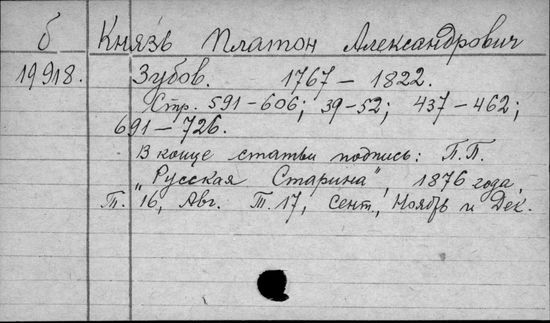 б Князь Платон Александрович
19918. Зубов. 1767 – 1822.
Стр. 591-606; 39-52; 437-462;
691-726.
В конце статьи подпись: П.П.
„Русская Старина", 1876 года,
Т. 16, Авг. Т. 17, Сент., Ноябрь и Дек.